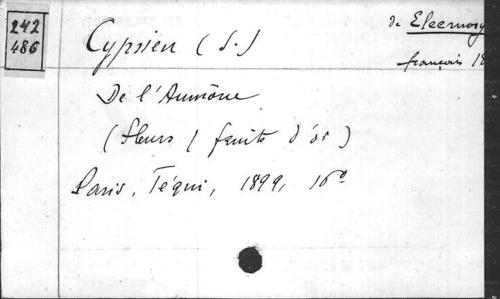 242
486
Cyprien (S.)
de Eleemosy
français 18
De l'Aumône
(Fleurs / fruits d'or)
Paris, Téqui, 1899, 16º